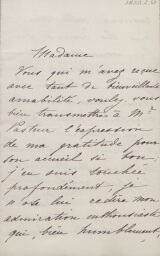 Madame
Vous qui m'avez reçue
avec tant de bienveillante
amabilité, voulez vous
bien transmettre à Mr
Pasteur l'expression
de ma gratitude pour
son accueil si bon.
j'en suis touchée
profondément, je
n'ose lui redire mon
admiration enthousiaste
qui, bien humblement,